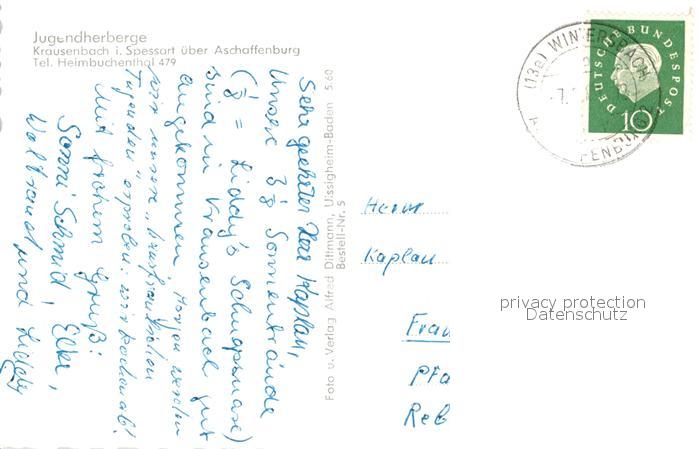 Jugendherberge
Krausenbach i. Spessart über Aschaffenburg
Tel. Heimbuchenthal 479
Sehr geehrter Herr Kaplan,
Unsere 3 1/8 Sonnenbrände
(1/8 = Liddy's Schnapsnase)
sind in Krausenbach gut
angekommen, Morgen werden
wir unsere „hausfraulichen
Tugenden" erproben: wir kochen ab!
Mit frohem Gruß:
Sonni Schmid, Elke,
Waltraud und Liddy
Foto u. Verlag Alfred Dittmann, Uissigheim-Baden 5.60
Bestell-Nr. 5
(13a) WINTERSBACH
DEUTSCHE BUNDESPOST
10
Herrn
Kaplan
Fran
Pfa
Reb
privacy protection
Datenschutz